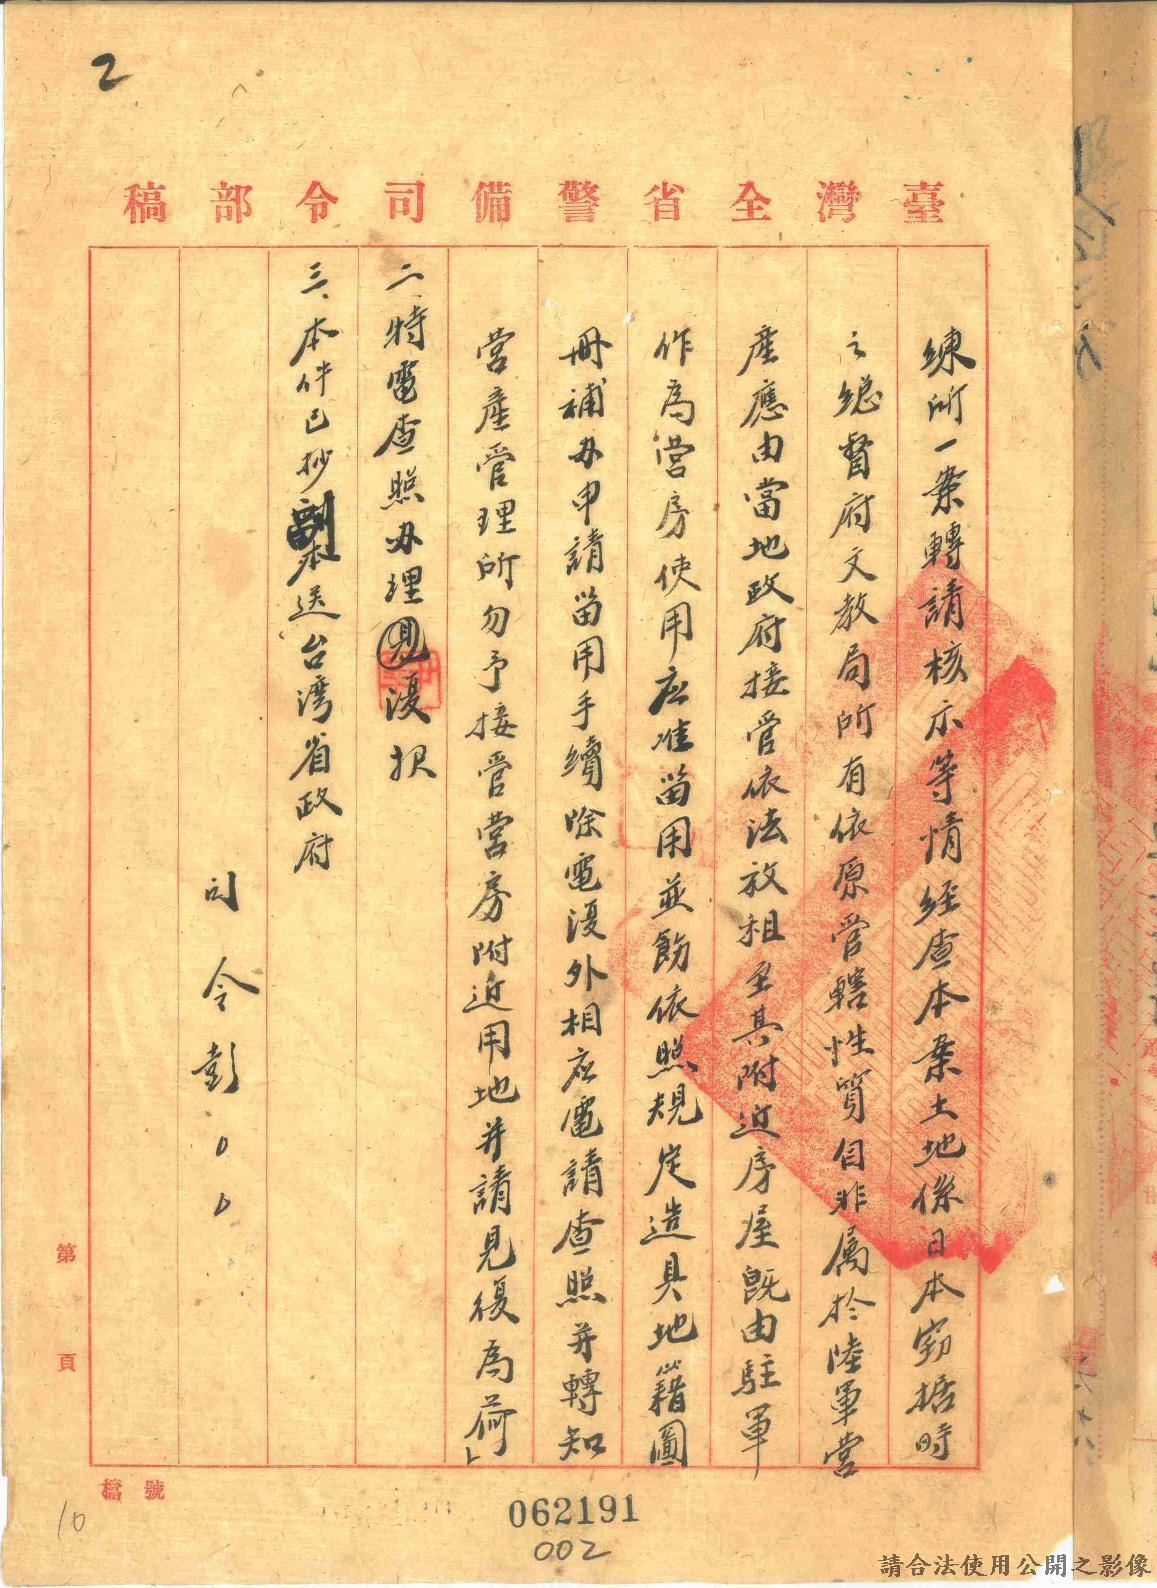 2
臺灣全省警備司令部稿
練所一案轉請核示等情經查本案土地係日本窃据時
之總督府文教局所有依原管轄性質自非属於陸軍營
產應由當地政府接管依法放租至其附近房屋既由駐軍
作為營房使用应准留用並飭依照規定造具地籍圖
冊補办申請留用手續除電復外相应電請查照并轉知
營產管理所勿予接管營房附近用地并請見復為荷」
二、特電查照办理見復
三、本件已抄副本送台灣省政府
司令彭00
第 頁
檔號
062191
002
10
請合法使用公開之影像